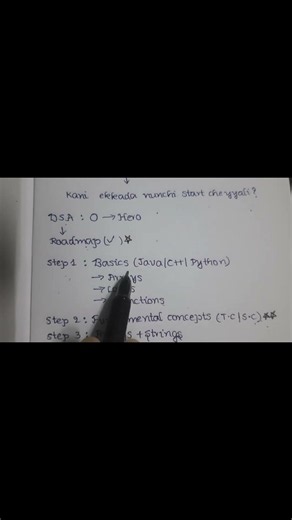 Kani ekkada nunchi start cheyyali?
DSA : 0 → Hero
↓
Roadmap (✓) ☆
Step 1 : Basics (Java | C++ | Python)
→
→
→
Step 2 : concepts (T.C | S.C) ☆☆
Step 3 : + Strings